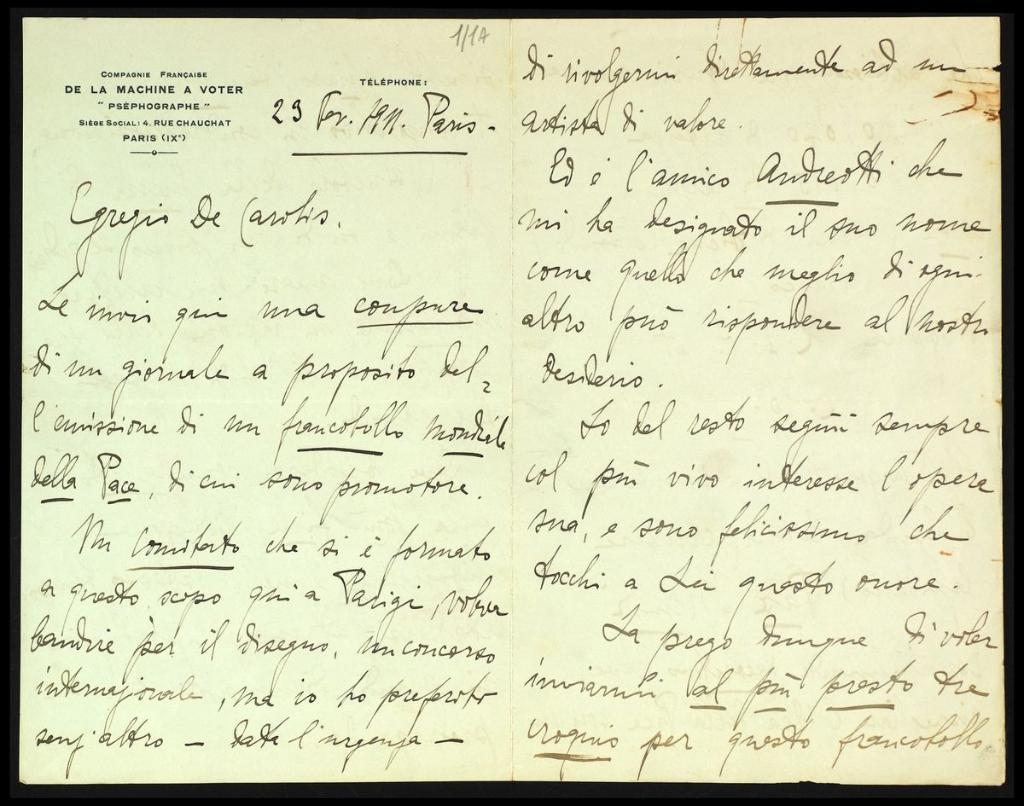 1/1A
COMPAGNIE FRANÇAISE
DE LA MACHINE A VOTER
"PSÉPHOGRAPHE"
SIÈGE SOCIAL: 4, RUE CHAUCHAT
PARIS (IXe)
TÉLÉPHONE:
23 Fev. 1911. Paris -
Egregio De Carolis.
Le invio qui una coupure
di un giornale a proposito del=
l'emissione di un francobollo mondiale
della Pace, di cui sono promotore.
Un Comitato che si è formato
a questo scopo qui a Parigi, voleva
bandire per il disegno, un concorso
internazionale, ma io ho preferito
senz'altro - data l'urgenza -
di rivolgermi direttamente ad un
artista di valore.
Ed è l'amico Andreotti che
mi ha designato il suo nome
come quello che meglio di ogni
altro può rispondere al nostro
desiderio.
Io del resto seguii sempre
col più vivo interesse l'opera
sua, e sono felicissimo che
tocchi a Lei questo onore.
La prego dunque di voler
inviarmi al più presto tre
croquis per questo francobollo